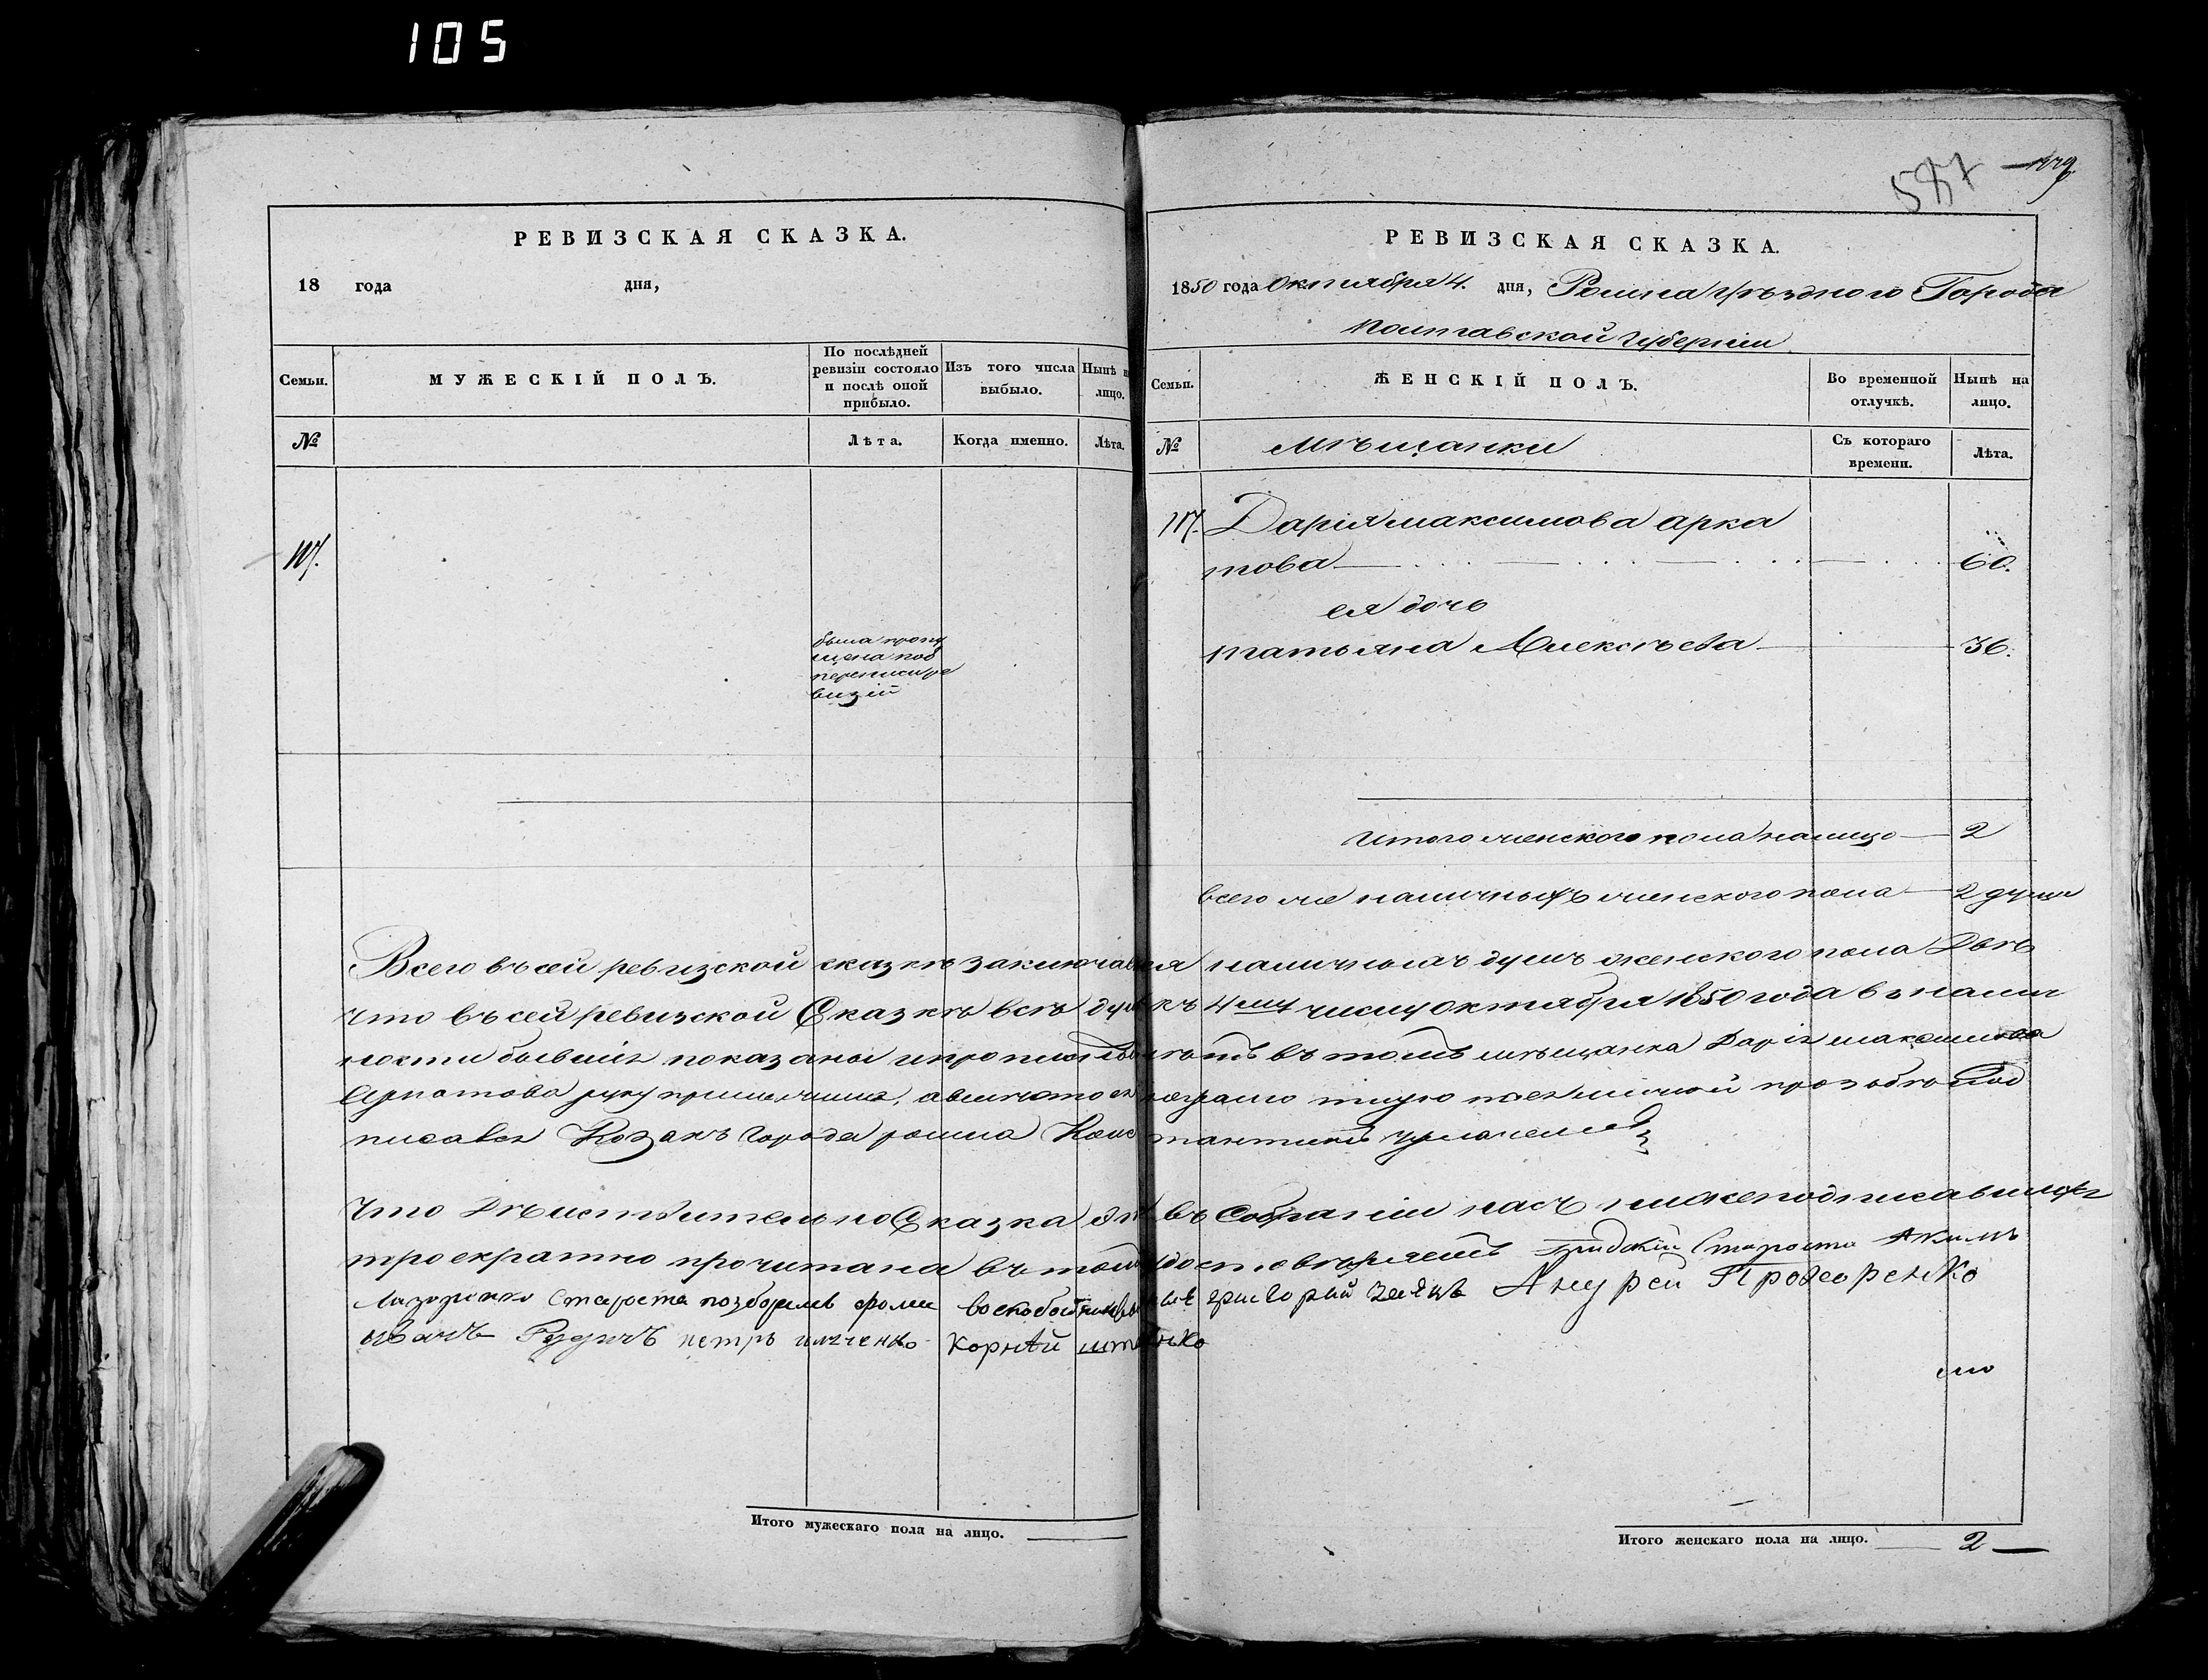 105
РЕВИЗСКАЯ СКАЗКА.
18 года дня,
Семьи.
МУЖЕСКІЙ ПОЛЪ.
По послѣдней ревизіи состояло и послѣ оной прибыло.
Изъ того числа выбыло.
Нынѣ на лицо.
№
Лѣта.
Когда именно.
Лѣта.
117.
была пропу
щена под
переписи ре
визіи
587
РЕВИЗСКАЯ СКАЗКА.
1850 года Октября 4. дня, Ромна Уѣздного Города
Полтавской Губерніи
Семьи.
ЖЕНСКІЙ ПОЛЪ.
Во временной отлучкѣ.
Нынѣ на лицо.
№
Мѣщанки
Съ котораго времени.
Лѣта.
117. Дарія максимова арка
това 60.
ея дочь
татьяна Алексѣева 36.
Итого женского пола налицо 2
всего же наличныхъ женского пола 2 души
Всего въ сей ревизской сказкѣ заключается наличныхъ душъ женского пола Двѣ
Что въ сей ревизской Сказкѣ всѣ души къ 4му числу октября 1850 года в налич
ности бывшіе показаны и въ томъ мѣщанка Дарія максимова
Аркатова руку а вместо ея неграмотную по ея личной прозьбѣ под
писался Козакъ города ромна Констянтинъ
Что Дѣйствительно Сказка эта въ Собраніи насъ нижеподписавшихся
троекратно прочитана въ томъ удостовѣряемъ Градскій Староста Акимъ
Лазоренко Староста по зборамъ фома воскобойниковъ григорий заецъ Андрей Прохоренко
иванъ Рудичъ петръ илченко корнѣй
Итого мужескаго пола на лицо.
Итого женскаго пола на лицо. 2